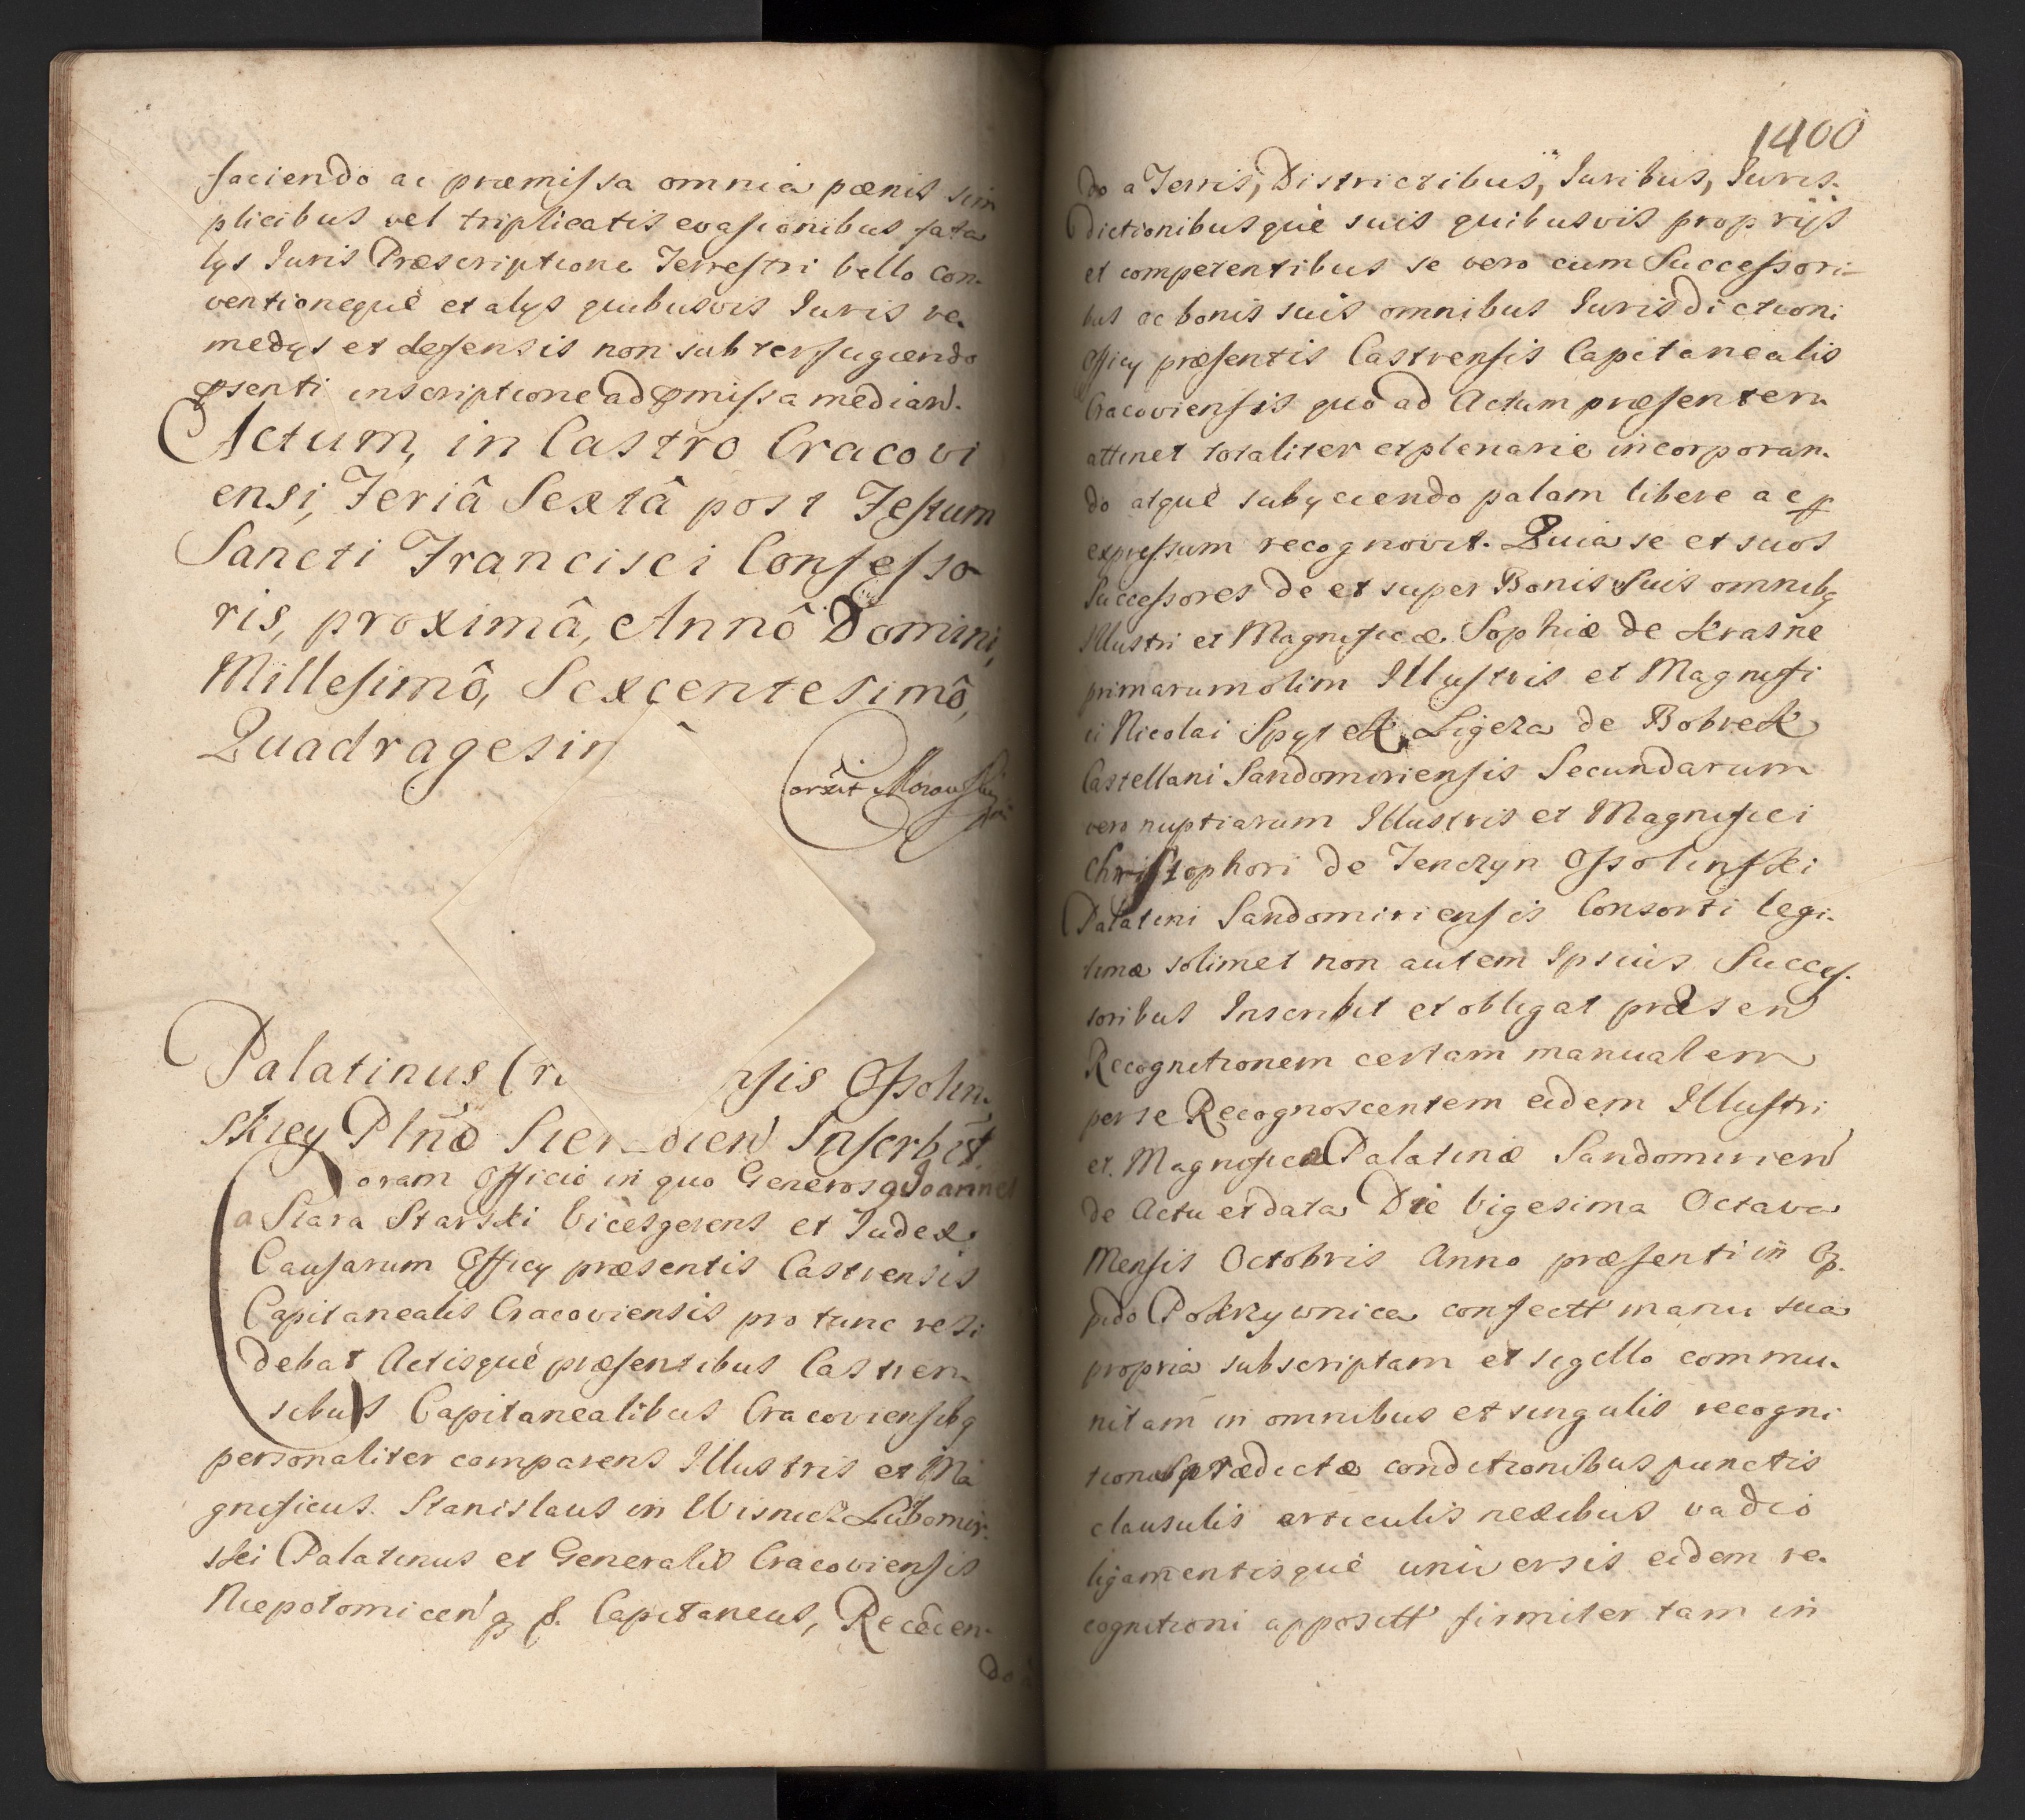 faciendo ac præmissa omnia pœnis sim
plicibus vel triplicatis evasionibus fata
lys Iuris Præscriptione Terrestri bello con-
ventionequè et alys quibusvis Iuris re-
medys et defensis non subterfugiendo
psenti inscriptione ad pmissa median.
Actum, in Castro Cracovi
ensi, Feriâ Sextâ post Festum
Sancti Francisci Confesso
ris, proximâ, Annô Domini,
Millesimô, Sexcentesimô,
Quadragesim
Corxit
Palatinus Cr nsis Ossolin
skiey Plnæ Inscrbit.
Coram Officio in quo Generosq Joannes
a Siara Starski Vicesgerens et Iudex
Causarum Officy præsentis Castrensis
Capitanealis Cracoviensis pro tunc resi
debat Actisquè præsentibus Castren-
sibus Capitanealibus Cracoviensibq
personaliter comparens Illustris et Ma
gnificus. Stanislaus in Wisnicz Lubomir-
ski Palatinus et Generalis Cracoviensis
Niepolomicen q p. Capitaneus, Receden-
do a
1400
do a Terris, Districtibus, Iuribus, Iuris-
dictionibusquè suis quibusvis proprijs
et competentibus se vero cum Successori-
bus ac bonis suis omnibus Iurisdictioni
Officy præsentis Castrensis Capitanealis
Cracoviensis quo ad Actum præsentem
attinet totaliter et plenarie incorporan-
do atquè subyciendo palam libere ac p
expressum recognovit. Quia se et suos
Successores de et super Bonis Suis omnibq
Illustri et Magnificæ Sophiæ de Krasne
primarum olim Illustris et Magnifi
ci Nicolai Spytek Ligeza de Bobrek
Castellani Sandomiriensis Secundarum
vero nuptiarum Illustris et Magnifici
Christophori de Tenczyn Ossolinski
Palatini Sandomiriensis Consorti legi-
timæ solimet non autem Ipsius Succes-
soribus Inscribit et obligat præsen
Recognitionem certam manualem
per se Recognoscentem eidem Illustri
et Magnificæ Palatinæ Sandomirien
de Actu et data Die Vigesima Octava
Mensis Octobris Anno præsenti in Op-
pido Pokrzywnica confectt manu sua
propria subscriptam et sigillo commu-
nitam in omnibus et singulis recogni
tionis prædictæ conditionibus punctis
clausulis articulis nexibus vadio
ligamentisquè universis eidem re-
cognitioni apposett firmiter tam in